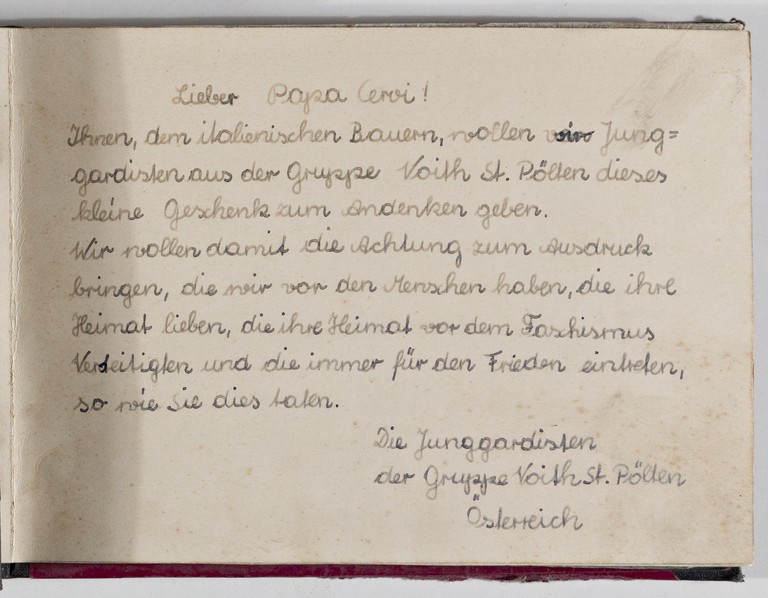 Lieber Papa Cervi!
Ihnen, dem italienischen Bauern, wollen wir Jung=
gardisten aus der Gruppe Voith St. Pölten dieses
kleine Geschenk zum Andenken geben.
Wir wollen damit die Achtung zum Ausdruck
bringen, die wir vor den Menschen haben, die ihre
Heimat lieben, die ihre Heimat vor dem Faschismus
Verteitigten und die immer für den Frieden eintreten,
so wie Sie dies taten.
Die Junggardisten
der Gruppe Voith St. Pölten
Österreich